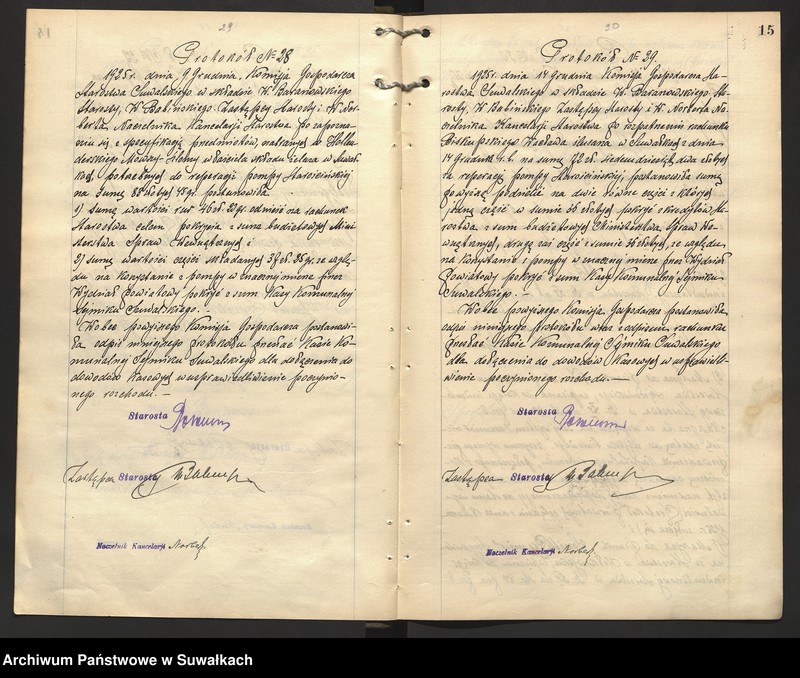 29
Protokół № 28
1925 r. dnia 9 Grudnia, Komisja Gospodarcza
Starostwa Suwalskiego w składzie W. Baranowskiego
Starosty, W. Babińskiego Zastępcy Starosty i W. Nor-
berta, Naczelnika Kancelarji Starostwa po zapozna-
niu się z specyfikacją przedmiotów,
właściciela składu żelaza w Suwał-
kach, potrzebnych do reperacji pompy Starościńskiej
na sumę 88 złotych 48 gr. postanowiła:
1) Sumę wartości rur 46 zł. gr. odnieść na rachunek
Starostwa celem pokrycia z sum budżetowych Mini-
sterstwa Spraw Wewnętrznych i
2) Sumę wartości części składanych zł. gr. ze wzglę-
du na korzystanie z pompy w znacznej mierze przez
Wydział Powiatowy pokryć z sum Kasy Komunalnej
Sejmiku Suwalskiego. –
Wobec powyższego Komisja Gospodarcza postanowi-
ła odpis niniejszego protokułu przesłać Kasie Ko-
munalnej Sejmiku Suwalskiego dla dołączenia do
dowodów Kasowych w usprawiedliwienie poczynio-
nego rozchodu. –
Starosta
Zastępca Starosty
Naczelnik Kancelarji Norbert
30
15
Protokół № 29.
1925 r. dnia 14 Grudnia Komisja Gospodarcza Sta-
rostwa Suwalskiego w składzie W. Baranowskiego Sta-
rosty, W. Babińskiego Zastępcy Starosty i W. Norberta Na-
czelnika Kancelarji Starostwa po rozpatrzeniu rachunku
Wacława ślusarza w Suwałkach z dnia
14 Grudnia r. b. na sumę 72 zł. siedemdziesiąt dwa złotych
za reperację pompy Starościńskiej, postanowiła sumę
powyższą podzielić na dwie równe części z których
jedną część w sumie 36 złotych pokryć z kredytów Sta-
rostwa z sum budżetowych Ministerstwa Spraw We-
wnętrznych, drugą zaś część w sumie 36 złotych, ze względu
na korzystanie z pompy w znacznej mierze przez Wydział
Powiatowy pokryć z sum Kasy Komunalnej Sejmiku
Suwalskiego. –
Wobec powyższego Komisja Gospodarcza postanowiła
odpis niniejszego protokułu wraz z odpisem rachunku
przesłać Kasie Komunalnej Sejmiku Suwalskiego
dla dołączenia do dowodów Kasowych w usprawiedli-
wienie poczynionego rozchodu. –
Starosta
Zastępca Starosty
Naczelnik Kancelarji Norbert
Archiwum Państwowe w Suwałkach